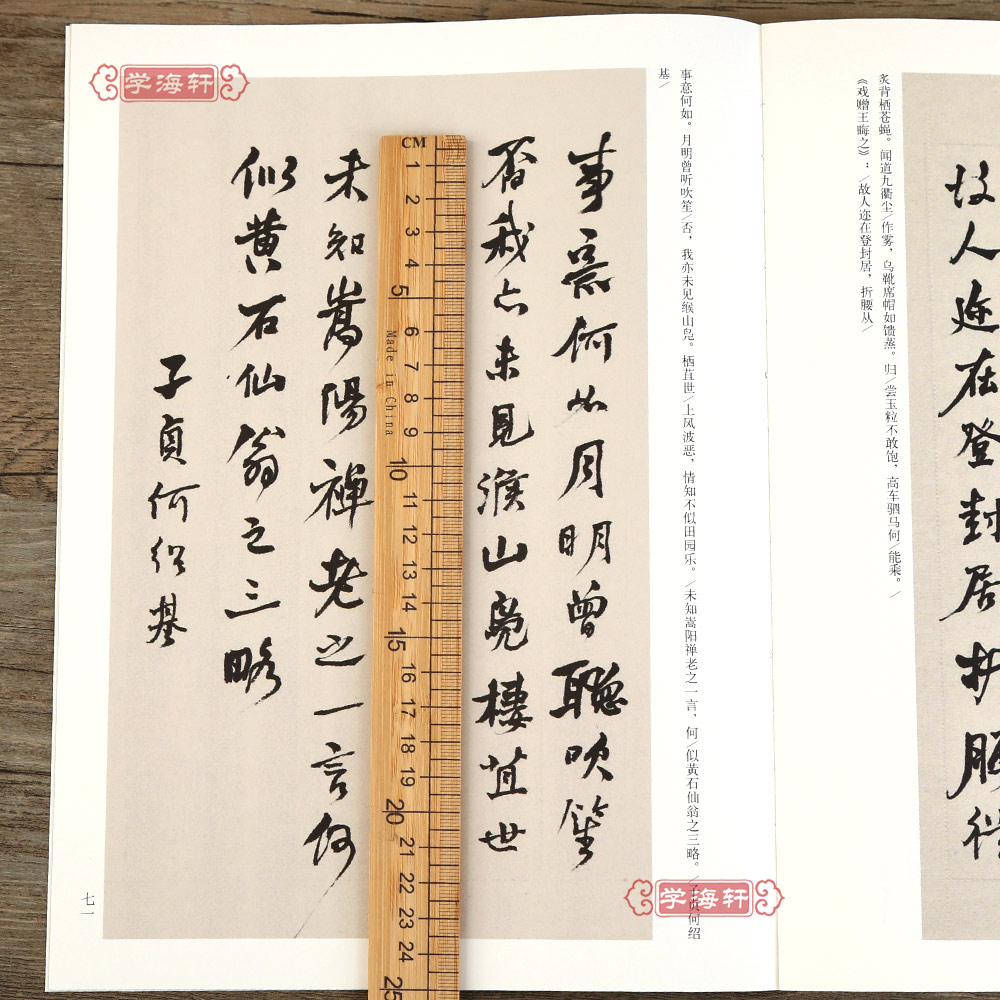 学海轩
炙背栖苍蝇。闻道九衢尘/作雾，乌靴席帽如馈蒸。归/尝玉粒不敢饱，高车驷马何/能乘。/
《戏赠王晦之》：/故人迩在登封居，折腰从/
故人迩在登封居折腰从
事意何如。月明曾听吹笙/否，我亦未见缑山凫。栖苴世/上风波恶，情知不似田园乐。/未知嵩阳禅老之一言，何/似黄石仙翁之三略。/子贞何绍
基/
事意何如月明曾聽吹笙
否我亦未見緱山凫棲苴世
CM
1
2
3
4
5
6
7
8
9
10
11
12
13
14
15
16
17
18
19
20
21
22
23
24
25
Made in China
未知嵩陽禪老之一言何
似黄石仙翁之三略
子貞何紹基
七一
学海轩